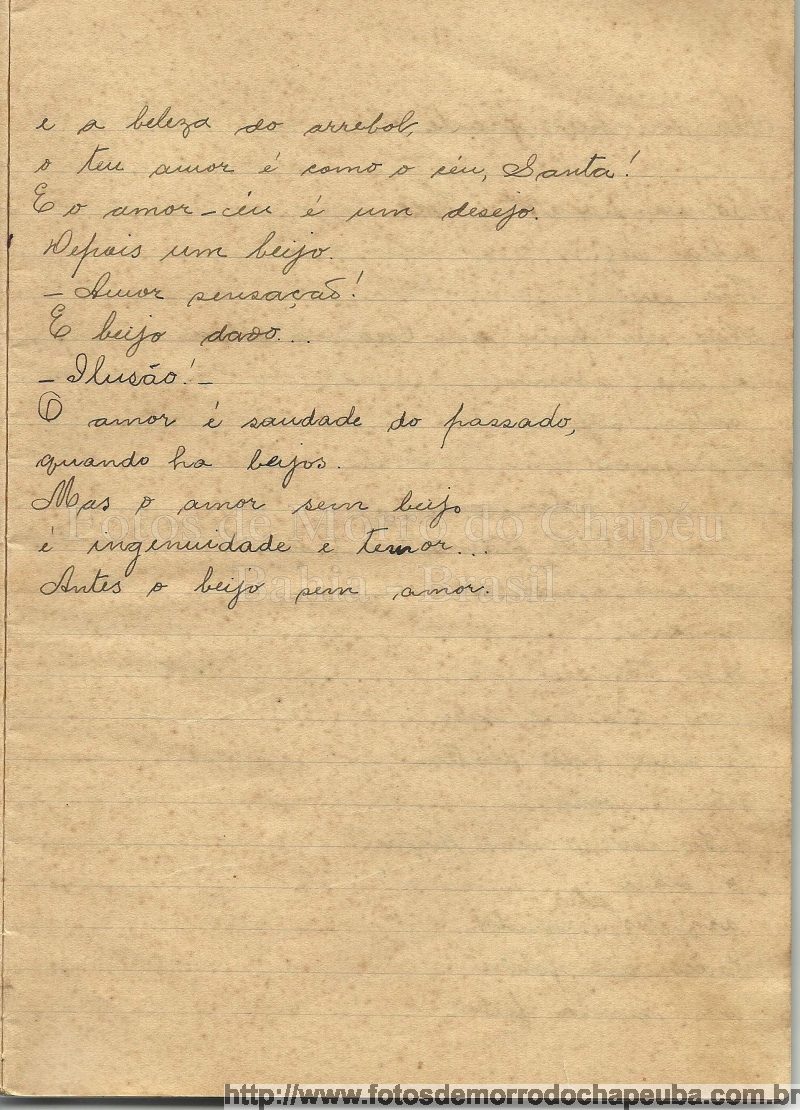 e a beleza do arrebol,
o teu amor é como o céu, Santa!
E o amor-céu é um desejo.
Depois um beijo.
- Amor sensação!
E beijo dado...
- Ilusão! -
O amor é saudade do passado,
quando ha beijos.
Mas o amor sem beijo
é ingenuidade e temor...
Antes o beijo sem amor.
Fotos de Morro do Chapéu
Bahia - Brasil
http://www.fotosdemorrodochapeuba.com.br